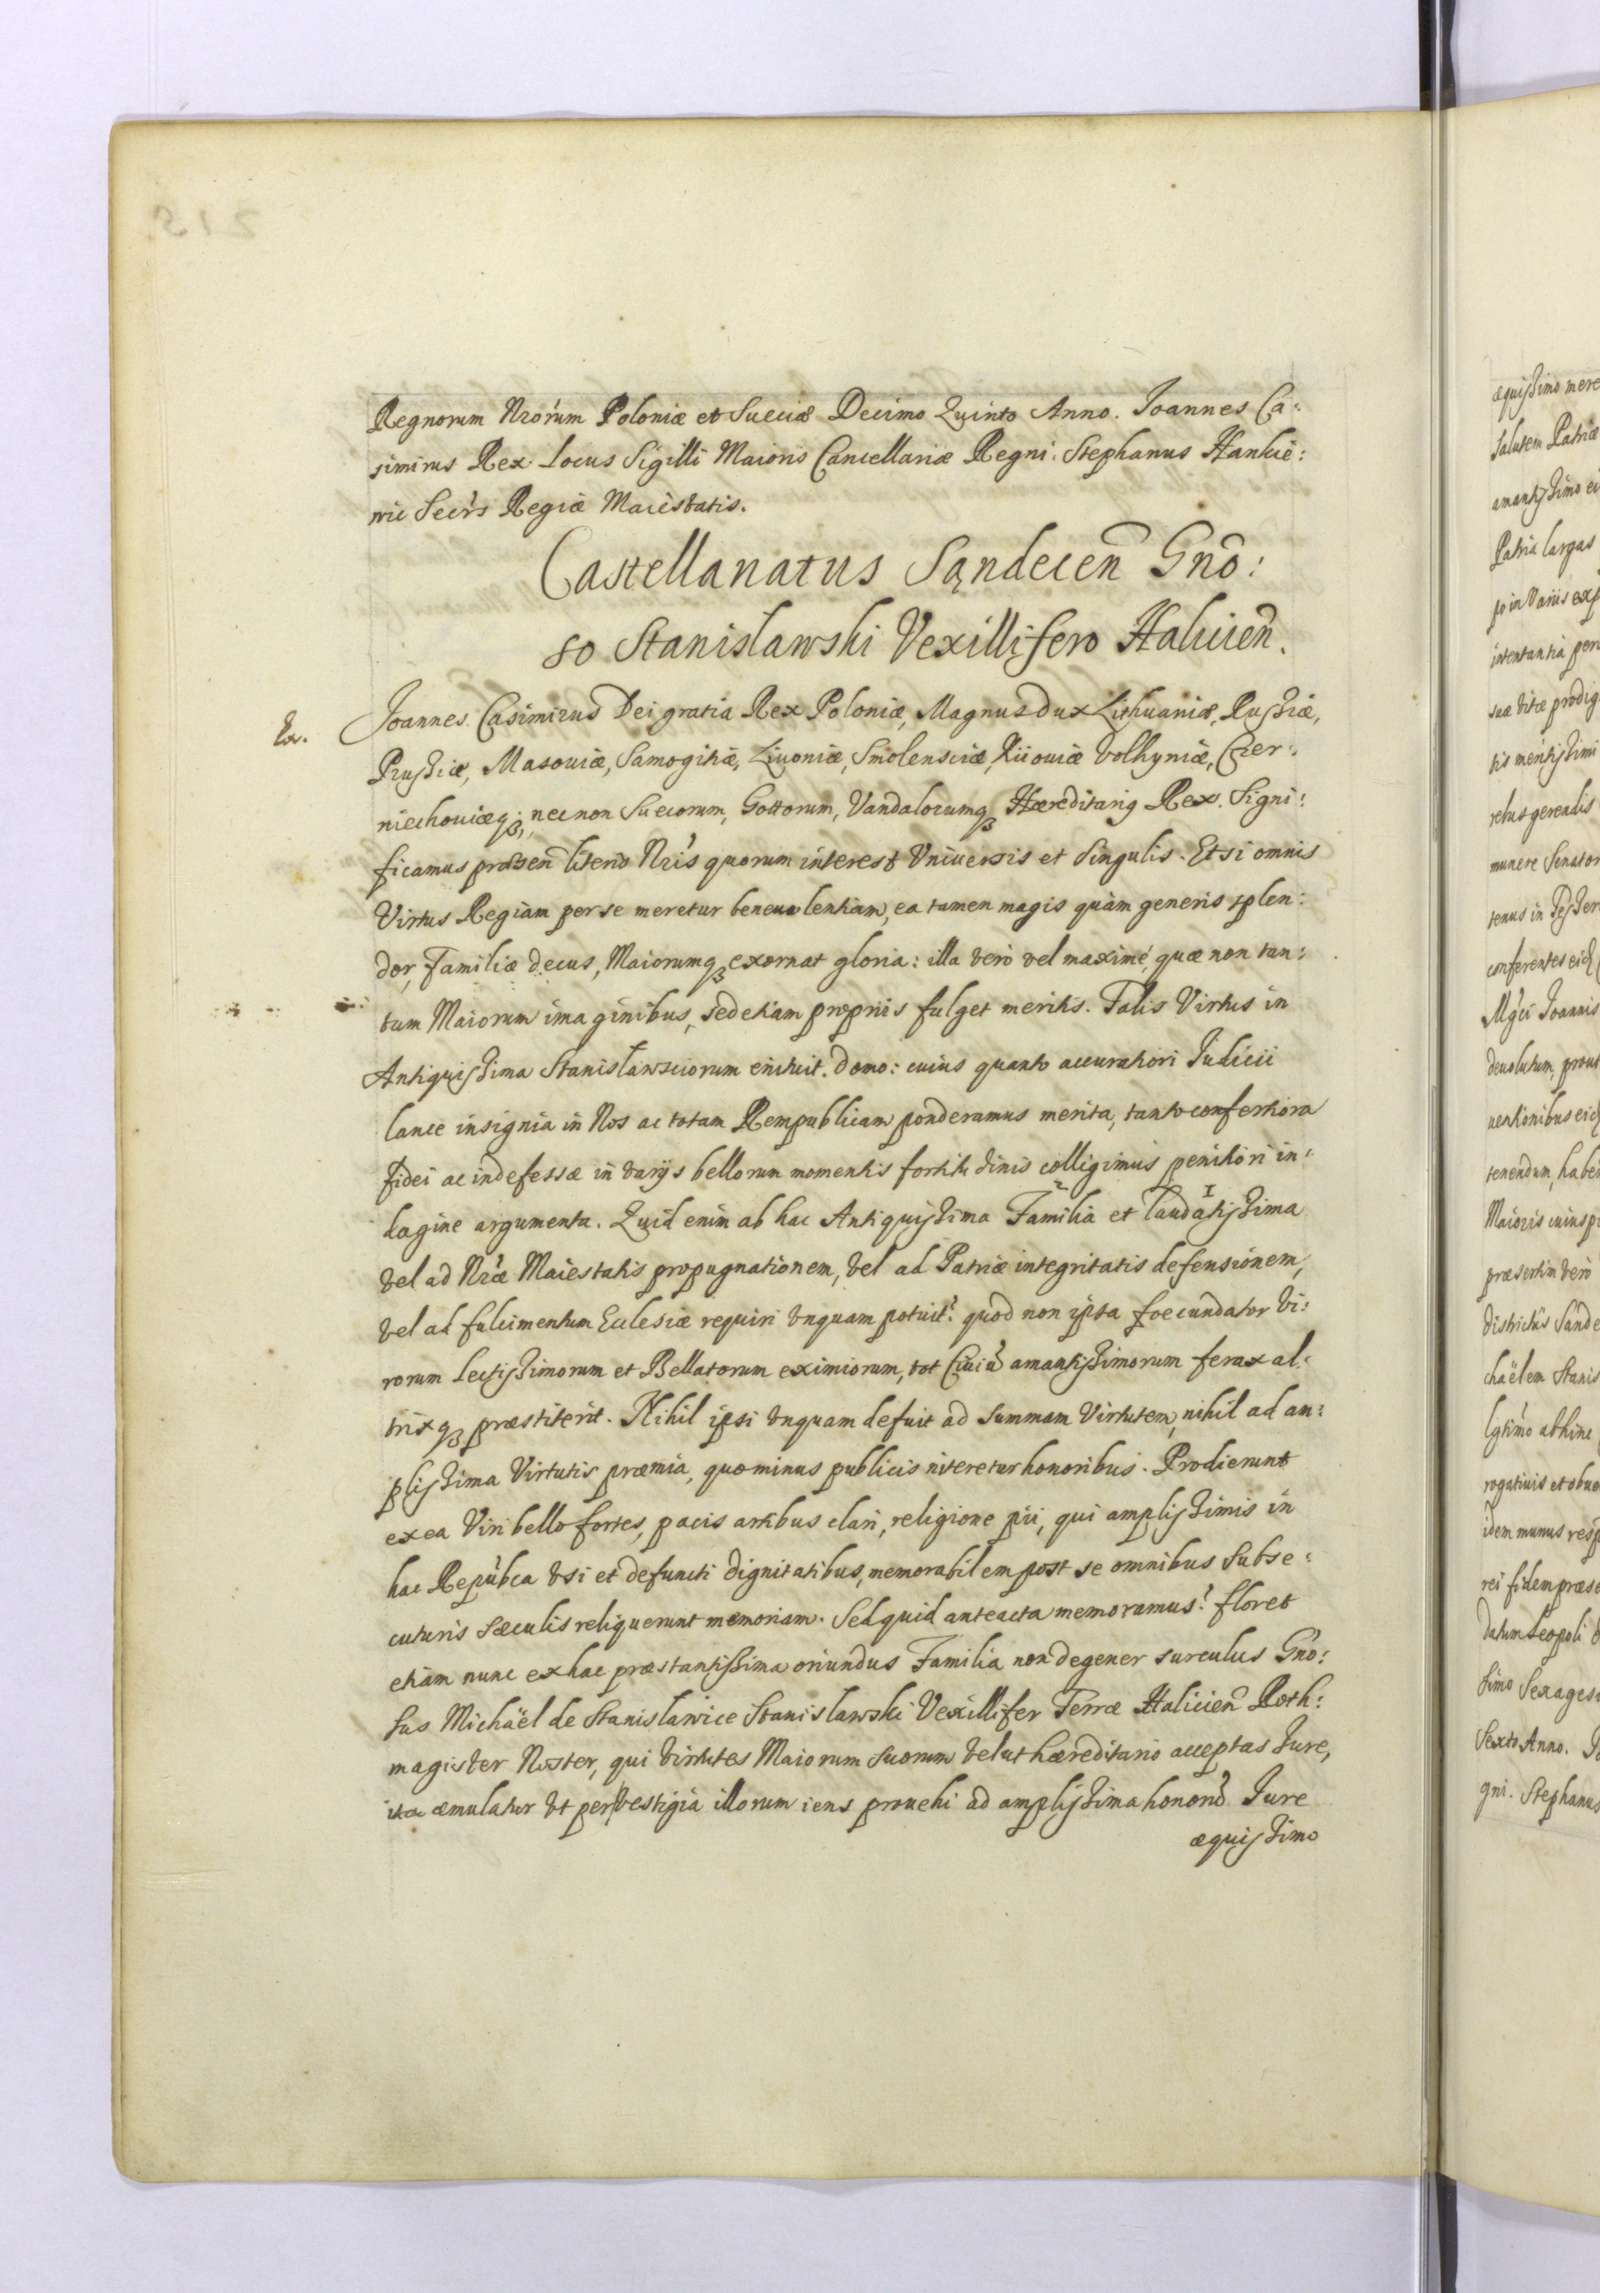 Regnorum Nrorum Poloniæ et Sueciæ Decimo Quinto Anno. Joannes Ca:
simirus Rex Locus Sigilli Maioris Cancellariæ Regni. Stephanus Hankie:
wic Secrs Regiæ Maiestatis.
Castellanatus Sąndecen Gno:
so Stanislawski Vexillifero Halicien.
Joannes Casimirus Dei gratia Rex Poloniæ, Magnus dux Lithuaniæ, Russiæ,
Prussiæ, Masouiæ, Samogitiæ, Liuoniæ, Smolensciæ, Kiiouiæ Volhyniæ, Czer:
niechouiæq; necnon Suecorum, Gottorum, Vandalorumq Hæreditariq Rex. Signi:
ficamus præsen literis Nris quorum interest Vniuersis et Singulis. Etsi omnis
Virtus Regiam per se meretur beneuolentiam, ea tamen magis quàm generis splen:
dor, Familiæ decus, Maiorumq exornat gloria: illa verò vel maximé, quæ non tan:
tum Maiorum imaginibus, sed etiam propriis fulget meritis. Talis Virtus in
Antiquissima Stanislawsciorum enituit. Domo: cuius quanto accuratiori Judicii
lance insignia in Nos ac totam Rempublicam ponderamus merita, tanto confertiora
fidei ac indefessæ in varijs bellorum momentis fortitudinis colligimus penitiori in:
dagine argumenta. Quid enim ab hac Antiquissima Familia 2 et laudatissima 1
vel ad Nræ Maiestatis propugnationem, vel ad Patriæ integritatis defensionem,
vel ad fulcimentum Ecclesiæ requiri vnquam potuit? quod non ipsa foecundator Vi:
rorum Lectissimorum et Bellatorum eximiorum, tot Ciuiu amantissimorum ferax al:
trixq præstiterit. Nihil ipsi vnquam defuit ad summam Virtutem, nihil ad an:
plissima Virtutis præmia, quominus publicis niteretur honoribus. Prodierunt
ex ea Viri bello fortes, pacis artibus clari, religione pii, qui amplissimis in
hac Repubca vsi et defuncti dignitatibus, memorabilem post se omnibus Subse:
cuturis sæculis reliquerunt memoriam. Sed quid anteacta memoramus? floret
etiam nunc ex hac præstantissima oriundus Familia non degener surculus Gno:
sus Michaël de Stanislawice Stanislawski Vexillifer Terræ Halicien Roth:
magister Noster, qui virtutes Maiorum suorum velut hæreditario acceptas Jure,
ita æmulatur vt per vestigia illorum iens prouehi ad amplissima honoru Jure
æquissimo